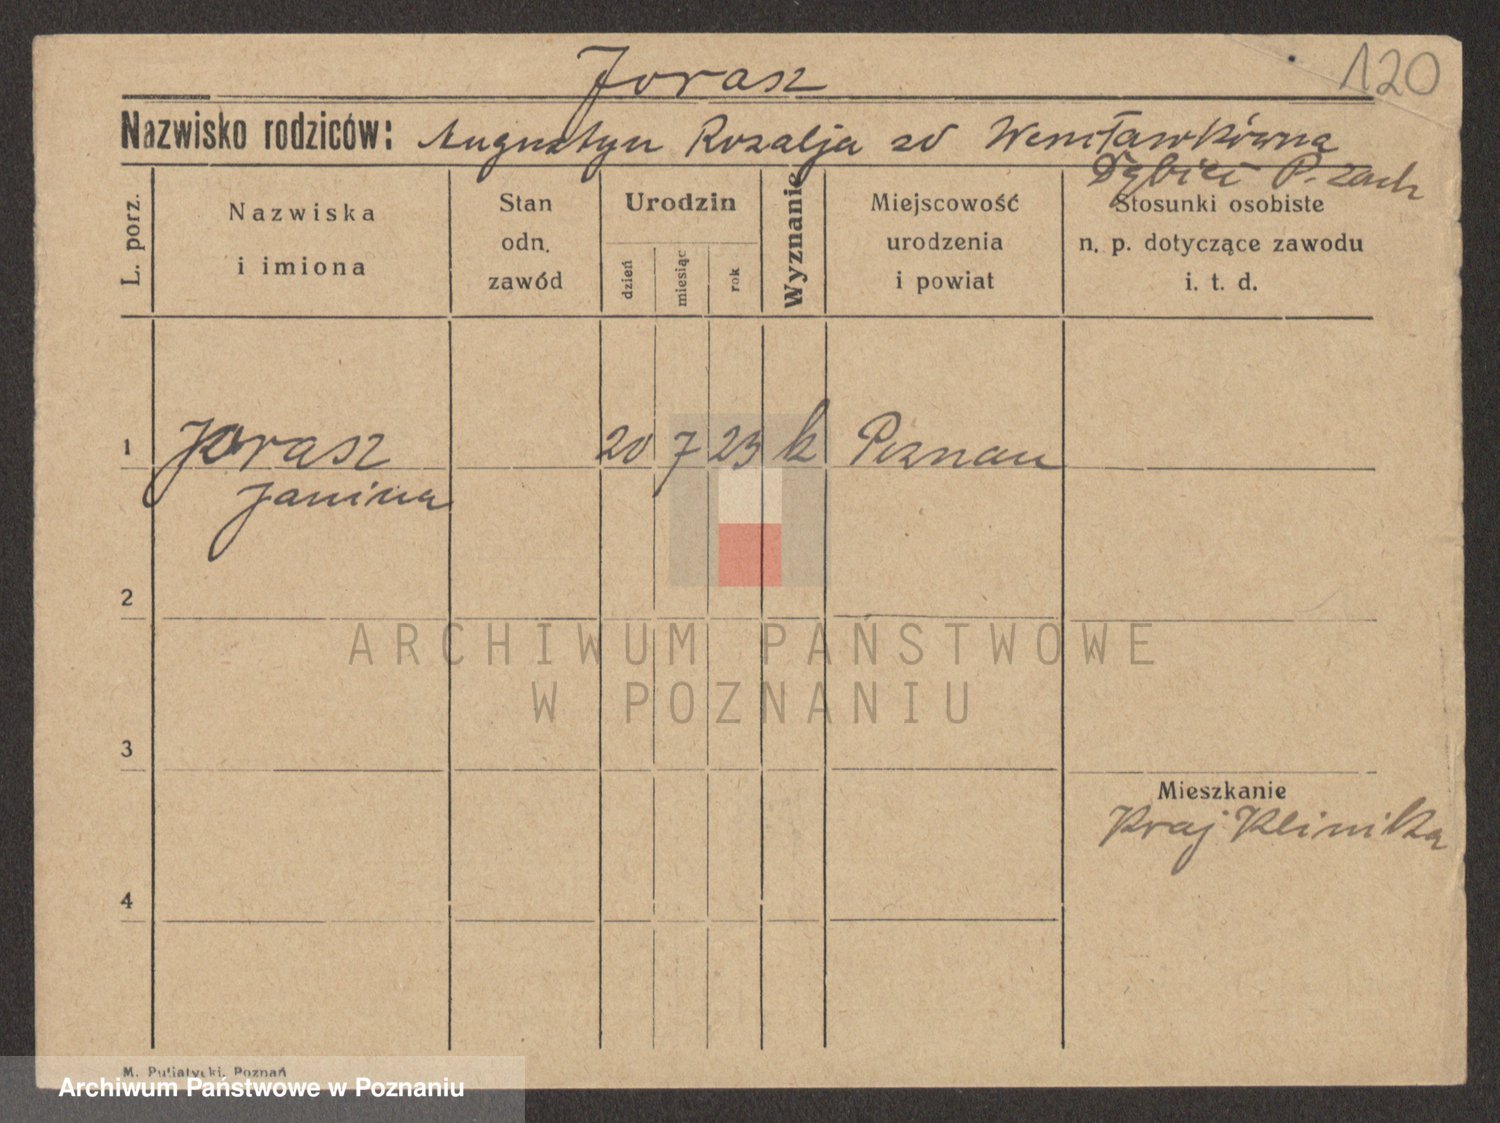 120
Jorasz
Nazwisko rodziców: Augustyn Rozalja zd
P. zach
L. porz.
Nazwiska
i imiona
Stan
odn.
zawód
Urodzin
dzień
miesiąc
rok
Wyznanie
Miejscowość
urodzenia
i powiat
Stosunki osobiste
n. p. dotyczące zawodu
i. t. d.
1 Jorasz 20 7 23 k Poznań
Janina
2
ARCHIWUM PAŃSTWOWE
W POZNANIU
3
Mieszkanie
Kraj Klinika
4
M. Putiatycki, Poznań
Archiwum Państwowe w Poznaniu